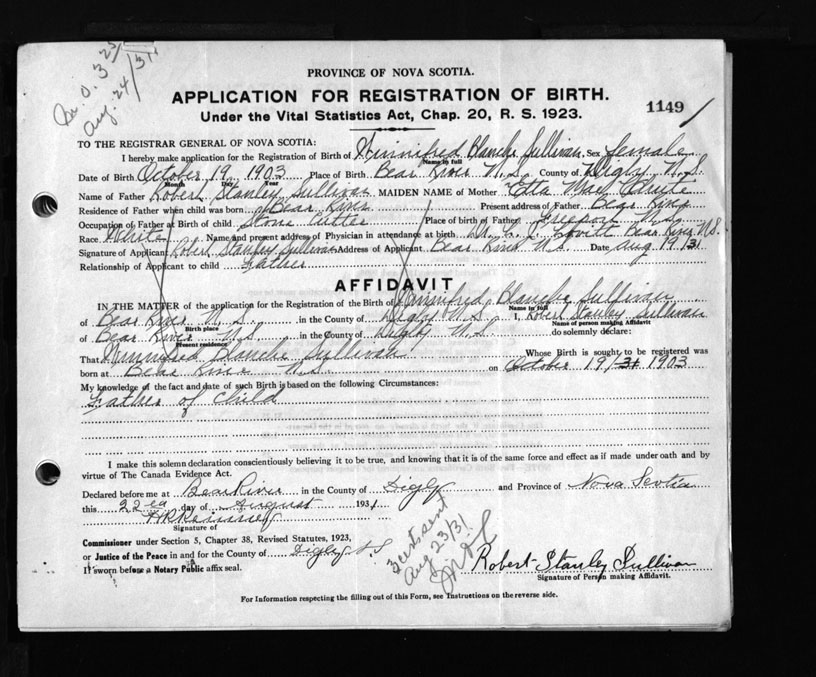 M.O. 3 25
Aug. 24/31
PROVINCE OF NOVA SCOTIA.
APPLICATION FOR REGISTRATION OF BIRTH.
Under the Vital Statistics Act, Chap. 20, R. S. 1923.
1149
TO THE REGISTRAR GENERAL OF NOVA SCOTIA:
I hereby make application for the Registration of Birth of Winnifred Blanche Sullivan Sex female
Name in full
Date of Birth October 19, 1903 Place of Birth Bear River N.S. County of Digby N.S.
Month Day Year
Name of Father Robert Stanley Sullivan MAIDEN NAME of Mother Etta May
Residence of Father when child was born Bear River Present address of Father Bear River
Occupation of Father at Birth of child Stone Cutter Place of birth of Father Freeport N.S.
Race White Name and present address of Physician in attendance at birth Dr. Lovitt Bear River N.S.
Signature of Applicant Robert Stanley Sullivan Address of Applicant Bear River N.S. Date Aug 19/31
Relationship of Applicant to child Father
AFFIDAVIT
IN THE MATTER of the application for the Registration of the Birth of Winnifred Blanche Sullivan
Name in full
of Bear River N.S. in the County of Digby N.S. I, Robert Stanley Sullivan
Birth place Name of person making Affidavit
of Bear River N.S. in the County of Digby N.S. do solemnly declare:
Present residence
That Winnifred Blanche Sullivan Whose Birth is sought to be registered was
born at Bear River N.S. on October 19/31 1903
My knowledge of the fact and date of such Birth is based on the following Circumstances:
Father of Child
I make this solemn declaration conscientiously believing it to be true, and knowing that it is of the same force and effect as if made under oath and by
virtue of The Canada Evidence Act.
Declared before me at Bear River in the County of Digby and Province of Nova Scotia
this 22nd day of August 1931
Signature of
Commissioner under Section 5, Chapter 38, Revised Statutes, 1923,
or Justice of the Peace in and for the County of Digby N.S.
If sworn before a Notary Public affix seal.
Cert sent
Aug 23/31
Robert Stanley Sullivan
Signature of Person making Affidavit.
For Information respecting the filling out of this Form, see Instructions on the reverse side.